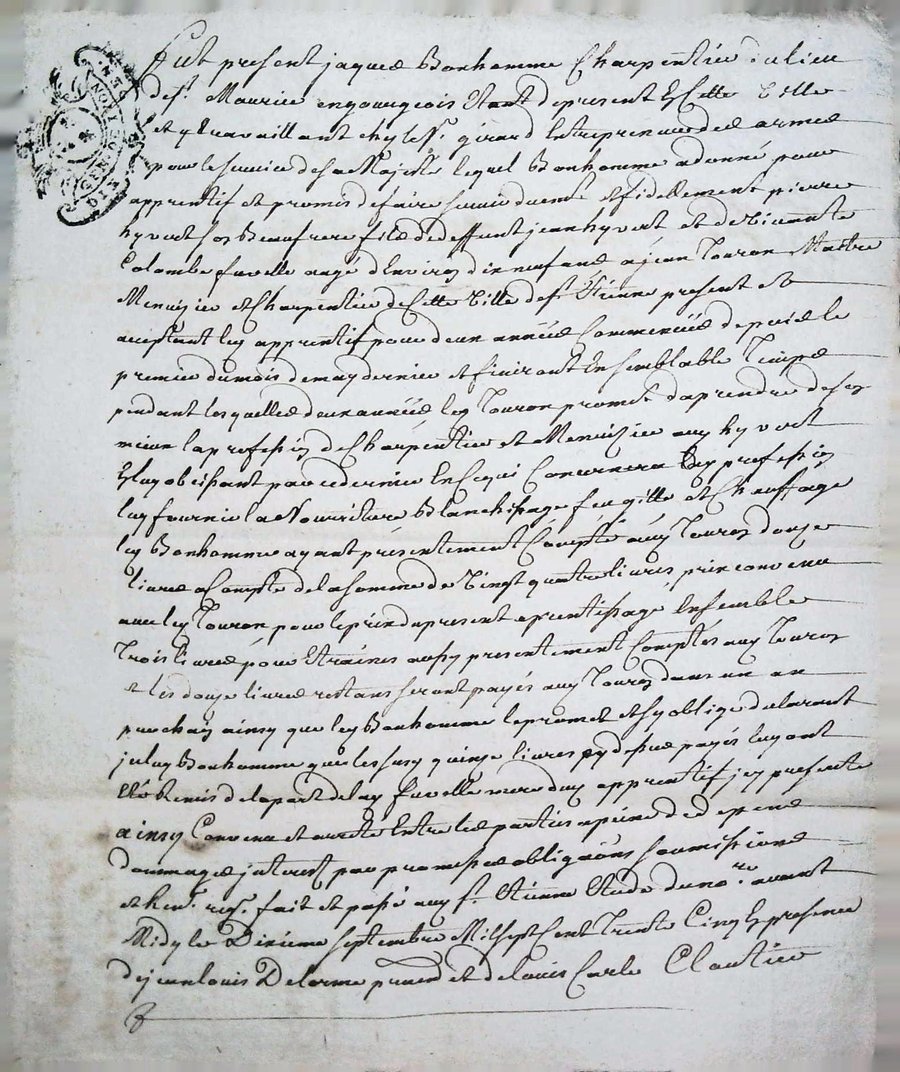 GEN. DE LION
Fut present jaques Bonhomme Charpentier du lieu
de st. Maurice en gourgeois Etant de present En Cette Ville
et y travaillant chez le Sr. girard Entrepreneur des armes
pour le service de sa Majesté lequel Bonhomme a donné pour
apprentif et promis de faire servir duemt. et fidellement pierre
hyvert son Beaufrere fils de deffunt jean hyvert et de vivante
Colombe favelle aagé d'Environ dixneuf ans a jean Touron Maitre
Menuisier et Charpentier de Cette Ville de st. Étienne present et
acceptant led apprentif pour deux années Commencées depuis le
premier du mois de may dernier et finiront En semblable Temps
pendant lesquelles deux années led Touron promet d'aprendre de son
mieux la profession de Charpentier et Menuisier aud hyvert
Luy obeissant par ce dernier En ce qui Concernera lad profession
luy fournir la Nourriture Blanchissage feu gitte et Chauffage
led Bonhomme ayant présentement Compté aud Touron douze
livres a Compte de la somme de Vingt quatre livres prix convenu
avec led Touron pour le prix du present aprentissage Ensemble
Trois livres pour Etraines aussy presentement Comptés aud Touron
et les douze livres restans seront payés aud Touron dans un an
prochain ainsy que led Bonhomme le promet et s'y oblige declarant
iceluy Bonhomme que les susd quinze livres cy dessus payés luy ont
Eté Remis de la part de lad favelle mere dud apprentif icy presente
ainsy Convenu et areté Entre les parties a peine de d epens
dommages jnterest par promesses obligaons soumissions
et Renon. reqs. fait et passé aud st. Étienne Etude du nore. avant
Midy le Dixieme septembre Mil sept Cent Trente Cinq En presence
de jean louis Delorme prated et de louis Carle Cloutier